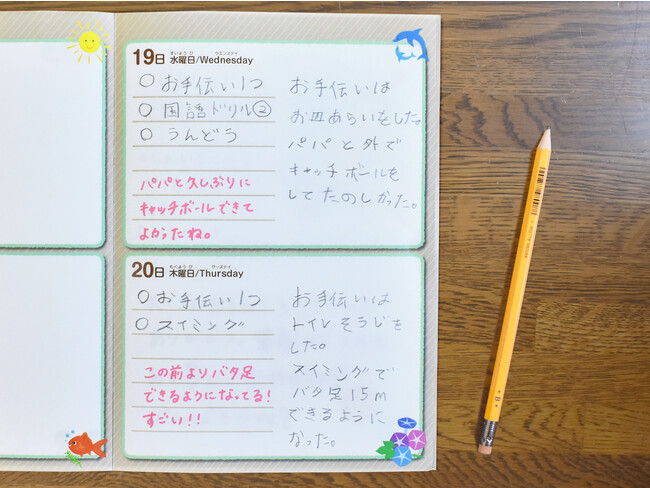 19日 水曜日/Wednesday
すいようび ウエンズデイ
〇お手伝い1つ
〇国語ドリル②
〇うんどう
パパと久しぶりに
キャッチボールできて
よかったね。
お手伝いは
お皿あらいをした。
パパと外で
キャッチボールを
してたのしかった。
20日 木曜日/Thursday
もくようび サーズデイ
〇お手伝い1つ
〇スイミング
この前よりバタ足
できるようになってる!
すごい!!
お手伝いは
トイレそうじを
した。
スイミングで
バタ足15m
できるように
なった。
B